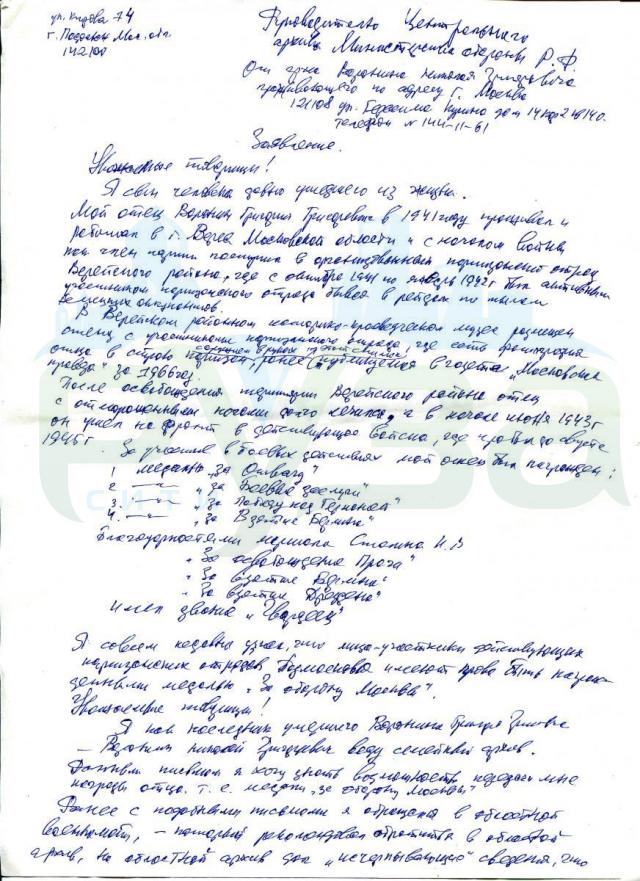 ул. Кирова 74
г. Подольск Мос. обл.
142100
Руководителю Центрального
архива Министерства обороны Р.Ф
От гр-на Воронина Николая Григорьевича
проживающего по адресу г. Москва
121108 ул. Герасима Курина дом 14 кор 2 кв 140.
телефон № 144-11-61
Заявление.
Уважаемые товарищи!
Я сын человека давно ушедшего из жизни.
Мой отец Воронин Григорий Григорьевич в 1941 году проживал и
работал в г. Верея Московской области и с началом войны
как член партии поступил в организованный партизанский отряд
Верейского района, где с октября 1941 по январь 1942г был активным
участником партизанского отряда бывая в рейдах по тылам
немецких оккупантов.
В Верейском районном историко-краеведческом музее размещен
стенд с участниками партизанского отряда, где есть фотография
отца в строю партизан, ранее публикуемая в газете „Московская
правда" за 1966год.
После освобождения территории Верейского района отец
с отмороженными ногами долго лечился, а в начале июня 1943г
он ушел на фронт в действующие войска, где был до августа
1945г.
За участие в боевых действиях мой отец был награжден:
1 медалью „За Отвагу"
2 —„— „за Боевые заслуги"
3. —„— „за Победу над Германией"
4. —„— „за Взятие Берлина"
Благодарностями маршала Сталина И.В
„За освобождение Праги"
„За взятие Берлина"
„За взятие Дрездена"
Имел звание „Гвардеец"
Я совсем недавно узнал, что лица-участники действующих
партизанских отрядов Подмосковья имеют право быть награж-
денными медалью „За оборону Москвы".
Уважаемые товарищи!
Я как наследник умершего Воронина Григория Григорьевича
– Воронин Николай Григорьевич веду семейный архив.
Данным письмом я хочу узнать возможность передачи мне
награды отца. т.е. медали „за оборону Москвы"
Ранее с подобными письмами я обращался в областной
военкомат, – который рекомендовал обратиться в областной
архив, но областной архив дал „исчерпывающие" сведения, что
СИТИ